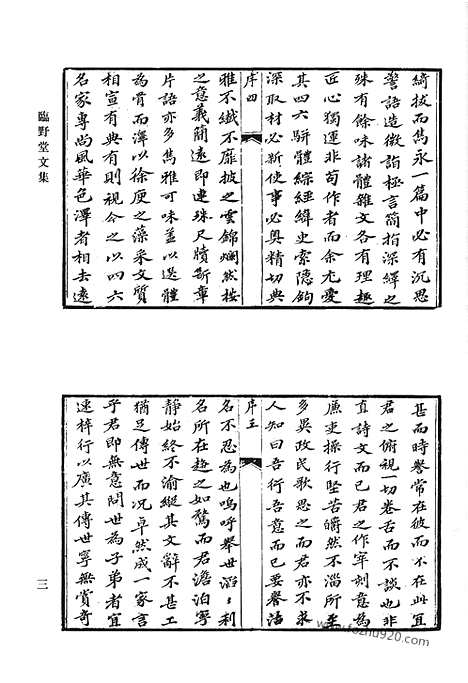 臨野堂文集
綺拔而雋永一篇中必有沉思
警語造徵詣極言簡指深繹之
殊有餘味諸體雜文各有理趣
匠心獨運非苟作者而余尤愛
其四六駢體綜經緯史索隱鉤
深取材必斷使事必奥精切典
序四
雅不纖不靡披之雲錦爛然按
之意義簡遠即連珠尺牘斷章
片語亦多雋雅可味蓋以選體
為骨而澤以徐庾之藻采文質
相宣有典有則視今之以四六
名家專尚風華色澤者相去遠
甚而時譽常在彼而不在此宜
君之俯視一切卷舌而不談也非
直詩文而已君之作宰刻意為
廉吏操行堅苦皭然不淄所至
多異政民歌思之而君亦不求
人知曰吾行吾意而已要譽沽
序五
名不忍為也嗚呼舉世滔滔利
名所在趨之如騖而君澹泊寧
靜始終不渝縱其文辭不甚工
猶足傳世而況卓然成一家言
乎君即無意問世為子弟者宜
速梓行以廣其傳世寧無賞奇
三
www.fozhu920.com